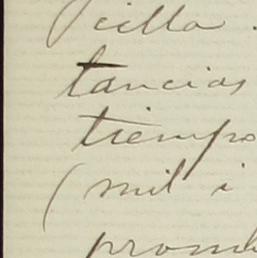 cilla
tancias
tiempo
(mil i
promb